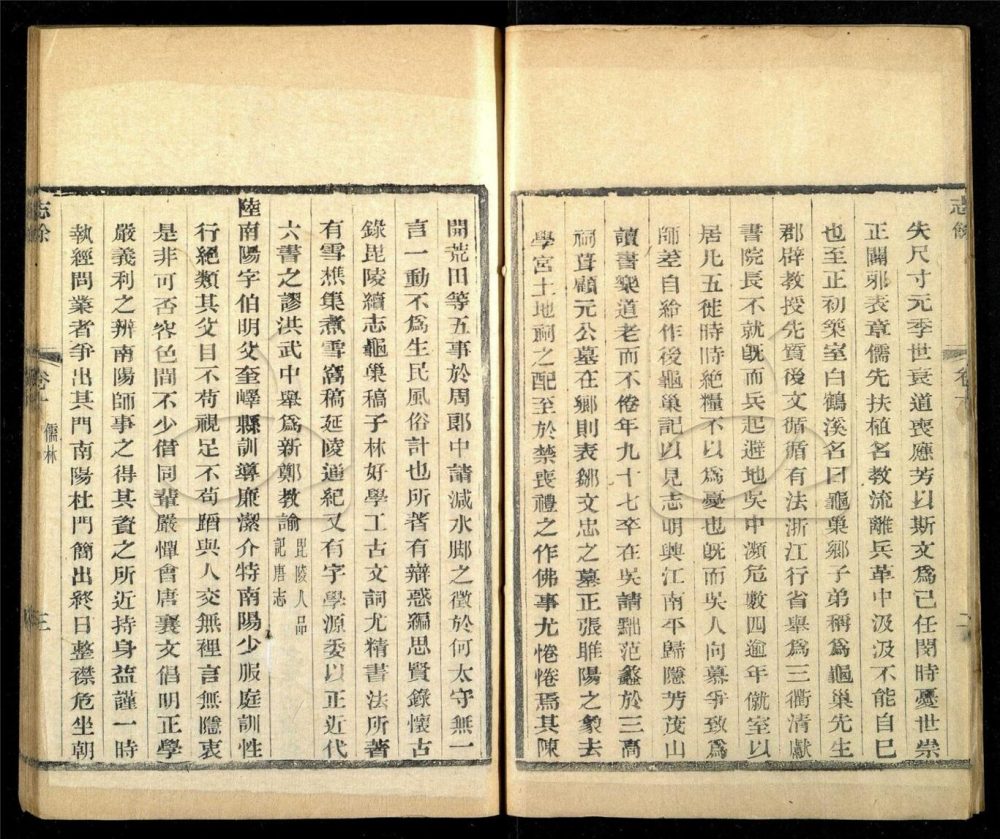 志餘
失尺寸元季世衰道喪應芳以斯文爲己任閔時憂世崇
正闢邪表章儒先扶植名教流離兵革中汲汲不能自已
也至正初築室白鶴溪名曰龜巢鄉子弟稱爲龜巢先生
郡辟教授先質後文循循有法浙江行省舉爲三衢清獻
書院長不就既而兵起避地吳中瀕危數四逾年僦室以
居凡五徙時時絶糧不以爲憂也既而吳人向慕爭致爲
師差自給作後龜巢記以見志明興江南平歸隱芳茂山
讀書樂道老而不倦年九十七卒在吳請黜范蠡於三高
祠葺顧元公墓在鄉則表鄒文忠之墓正張睢陽之象去
學宮土地祠之配至於禁喪禮之作佛事尤惓惓焉其陳
開荒田等五事於周郎中請減水脚之徵於何太守無一
言一動不爲生民風俗計也所著有辯惑編思賢錄懷古
錄毘陵續志龜巢稿子林好學工古文詞尤精書法所著
有雪樵集煮雪窩稿延陵通紀又有字學源委以正近代
六書之謬洪武中舉爲新鄭教諭毘陵人品
記唐志
陸南陽字伯明父奎嶧縣訓導廉潔介特南陽少服庭訓性
行絕類其父目不苟視足不苟蹈與人交無裡言無隱衷
是非可否容色間不少借同輩嚴憚會唐襄文倡明正學
嚴義利之辨南陽師事之得其資之所近持身益謹一時
執經問業者爭出其門南陽杜門簡出終日整襟危坐朝
志餘
卷十
儒林
三